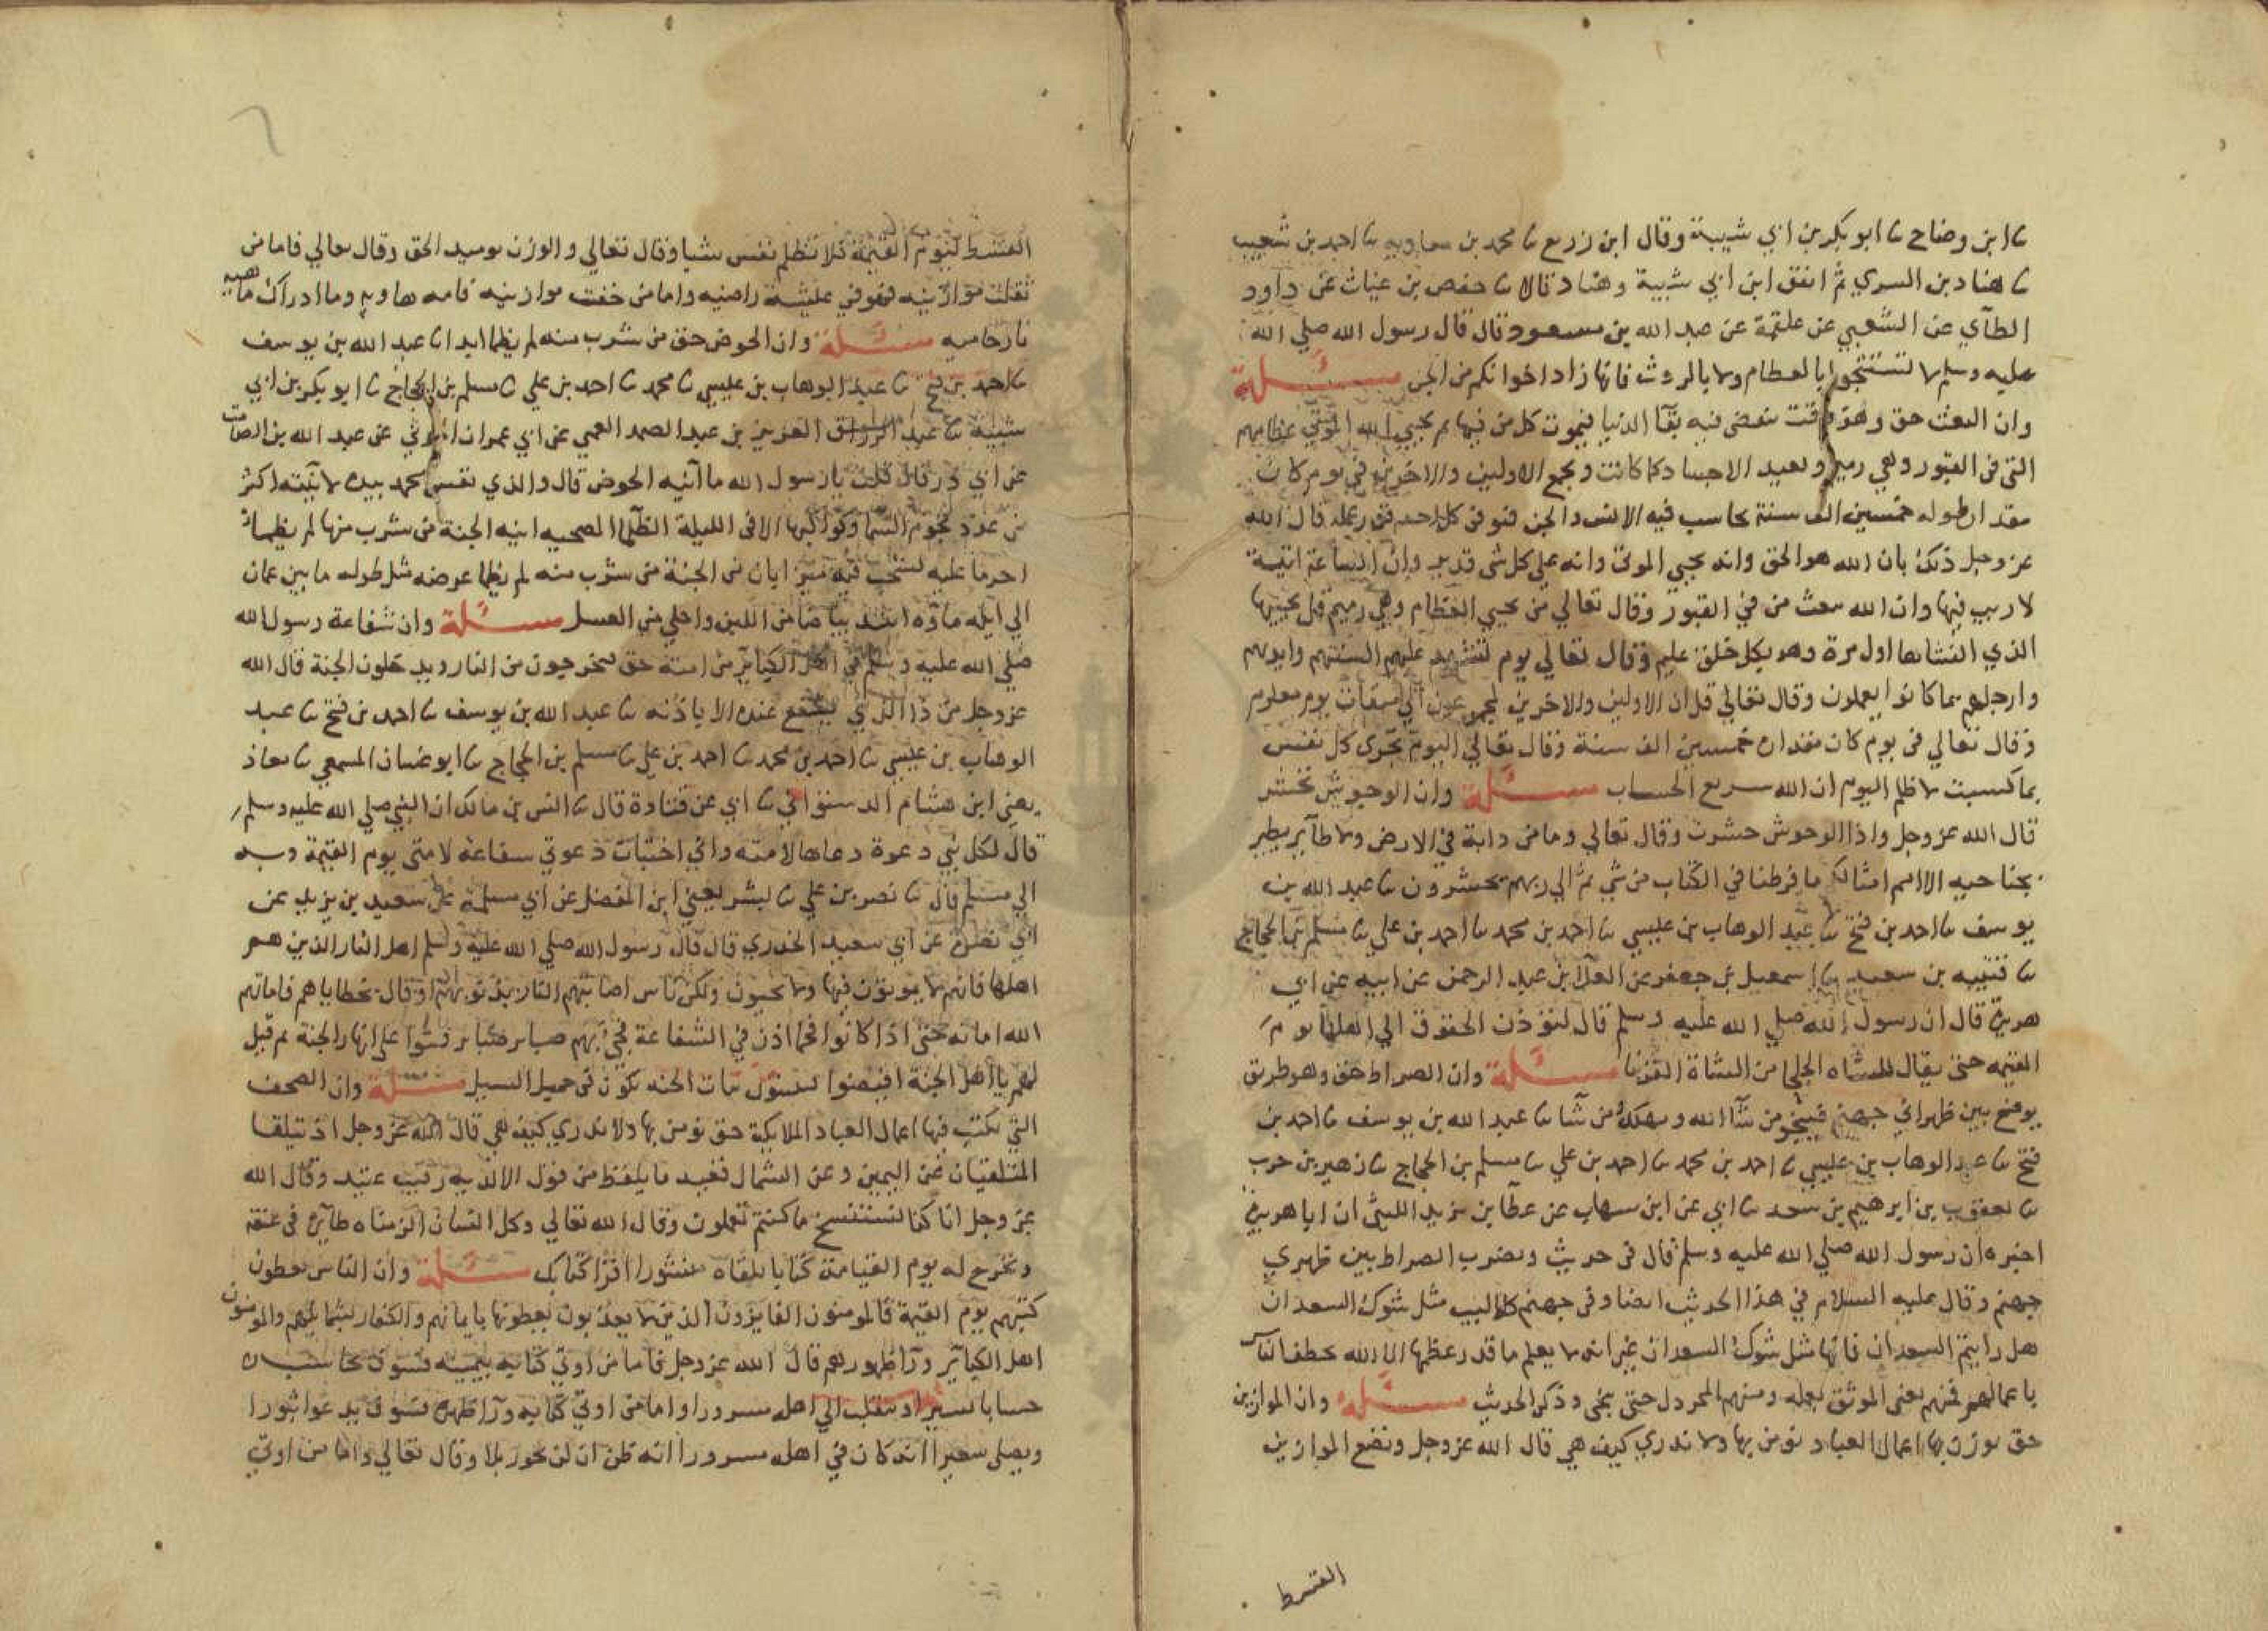 ثنا ابن وضاح ثنا ابو بكر بن ابي شيبة وقال ابن زرع ثنا محمد بن معاويه ثنا احمد بن شعيب
ثنا هناد بن السري ثم اتفق ابن ابي شيبة وهناد قالا ثنا حفص بن غياث عن داود
الطآي عن الشعبي عن علقمة عن عبد الله بن مسعود قال قال رسول الله صلي الله
عليه وسلم لا تستنجوا بالعظام ولا بالروث فانها زاد اخوانكم من الجن مسئلة
وان البعث حق وهو وقت ينقضي فيه بقآ الدنيا فيموت كل من فيها ثم يحيي الله الموتي عظامهم
التي في القبور وهي رميم ويعيد الاجساد كما كانت ويجمع الاولين والاخرين في يوم كان
مقدار طوله خمسين الف سنة يحاسب فيه الانس والجن فيوفي كل احد قدر عمله قال الله
عز وجل ذلك بان الله هو الحق وانه يحيي الموتي وانه علي كل شي قدير وان الساعة اتية
لا ريب فيها وان الله يبعث من في القبور وقال تعالي من يحيي العظام وهي رميم قل يحييها
الذي انشاها اول مرة وهو بكل خلق عليم وقال تعالي يوم تشهد عليهم السنتهم وايديهم
وارجلهم بما كانوا يعملون وقال تعالي قل ان الاولين والاخرين لمجموعون الي ميقات يوم معلوم
وقال تعالي في يوم كان مقداره خمسين الف سنة وقال تعالي اليوم تجزي كل نفس
بما كسبت لا ظلم اليوم ان الله سريع الحساب مسئلة وان الوحوش تحشر
قال الله عز وجل واذا الوحوش حشرت وقال تعالي وما من دابة في الارض ولا طآير يطير
بجناحيه الا امم امثالكم ما فرطنا في الكتاب من شي ثم الي ربهم يحشرون ثنا عبد الله بن
يوسف ثنا احمد بن فتح ثنا عبد الوهاب بن عيسي ثنا احمد بن محمد ثنا احمد بن علي ثنا مسلم بن الحجاج
ثنا قتيبه بن سعيد ثنا اسمعيل بن جعفر عن العلآ بن عبد الرحمن عن ابيه عن ابي
هريرة قال ان رسول الله صلي الله عليه وسلم قال لتؤذن الحقوق الي اهلها يوم
القيمه حتي يقال للشاه الجلحا من الشاة القرنا مسئلة وان الصراط حق وهو طريق
يوضع بين ظهراني جهنم فينجو من شآ الله ويهلك من شآ ثنا عبد الله بن يوسف ثنا احمد بن
فتح ثنا عبد الوهاب بن عيسي ثنا احمد بن محمد ثنا احمد بن علي ثنا مسلم بن الحجاج ثنا زهير بن حرب
ثنا يعقوب بن ابرهيم بن سعد ثنا ابي عن ابن شهاب عن عطآ بن يزيد الليثي ان ابا هريرة
اخبره ان رسول الله صلي الله عليه وسلم قال في حديث ويضرب الصراط بين ظهري
جهنم وقال عليه السلام في هذا الحديث ايضا وفي جهنم كلاليب مثل شوك السعدان
هل رايتم السعدان فانها مثل شوك السعدان غير انه لا يعلم ما قدر عظمها الا الله تخطف الناس
باعمالهم فمنهم يعني الموثق بعمله ومنهم المخردل حتي ينجي وذكر الحديث مسئلة وان الموازين
حق توزن بها اعمال العباد نؤمن بها ولا ندري كيف هي قال الله عز وجل ونضع الموازين
القسط
القسط ليوم القيمة فلا تظلم نفس شيا وقال تعالي والوزن يوميد الحق وقال تعالي فاما من
ثقلت موازينه فهو في عيشة راضيه واما من خفت موازينه فامه هاويه وما ادراك ماهيه
نار حاميه مسئلة وان الحوض حق من شرب منه لم يظما ابدا ثنا عبد الله بن يوسف
ثنا احمد بن فتح ثنا عبد الوهاب بن عيسي ثنا محمد ثنا احمد بن علي ثنا مسلم بن الحجاج ثنا ابو بكر بن ابي
شيبة ثنا عبد العزيز بن عبد الصمد العمي عن ابي عمران الجوني عن عبد الله بن الصامت
عن ابي ذر قال قلت يا رسول الله ما آنيه الحوض قال والذي نفس محمد بيده لآنيته اكثر
من عدد نجوم السما وكواكبها الا في الليلة الظلما المصحيه انيه الجنة من شرب منها لم يظما
اخر ما عليه يشخب فيه ميزابان من الجنة من شرب منه لم يظما عرضه مثل طوله ما بين عمان
الي ايله ماؤه اشد بياضا من اللبن واحلي من العسل مسئلة وان شفاعة رسول الله
صلي الله عليه وسلم في اهل الكبآير من امته حق فيخرجون من النار ويدخلون الجنة قال الله
عز وجل من ذا الذي يشفع عنده الا باذنه ثنا عبد الله بن يوسف ثنا احمد بن فتح ثنا عبد
الوهاب بن عيسي ثنا احمد بن محمد ثنا احمد بن علي ثنا مسلم بن الحجاج ثنا ابو غسان المسمعي ثنا معاذ
يعني ابن هشام الدستوائي ثنا ابي عن قتادة قال ثنا انس بن مالك ان النبي صلي الله عليه وسلم
قال لكل نبي دعوة دعاها لامته واني اختبات دعوتي شفاعة لامتي يوم القيمة وبه
الي مسلم قال ثنا نصر بن علي ثنا بشر يعني ابن المفضل عن ابي مسلمة سعيد بن يزيد عن
ابي نضرة عن ابي سعيد الخدري قال قال رسول الله صلي الله عليه وسلم اهل النار الذين هم
اهلها فانهم لا يموتون فيها ولا يحيون ولكن ناس اصابتهم النار بذنوبهم او قال بخطاياهم فاماتهم
الله اماته حتي اذا كانوا فحما اذن في الشفاعة فجئ بهم ضباير ضباير فبثوا علي انهار الجنة ثم قيل
لهم يا اهل الجنة افيضوا نبات الحبه تكون في حميل السيل مسئلة وان الصحف
التي تكتب فيها اعمال العباد الملايكة حق نؤمن بها ولا ندري كيف هي قال الله عز وجل اذ يتلقا
المتلقيان عن اليمين وعن الشمال قعيد ما يلفظ من قول الا لديه رقيب عتيد وقال الله
عز وجل انا كنا نستنسخ ما كنتم تعملون وقال الله تعالي وكل انسان الزمناه طآيره في عنقه
ونخرج له يوم القيامة كتابا يلقاه منشورا اقرا كتابك مسئلة وان الناس يعطون
كتبهم يوم القيمة فالمومنون الفايزون الذين لا يعذبون يعطونها بايمانهم والكفار بشمايلهم والمومنون
اهل الكبآير ورآ ظهورهم قال الله عز وجل فاما من اوتي كتابه بيمينه فسوف يحاسب
حسابا يسيرا وينقلب الي اهله مسرورا واما من اوتي كتابه ورآ ظهره فسوف يدعوا ثبورا
ويصلي سعيرا انه كان في اهله مسرورا انه ظن ان لن يحور بلا وقال تعالي واما من اوتي